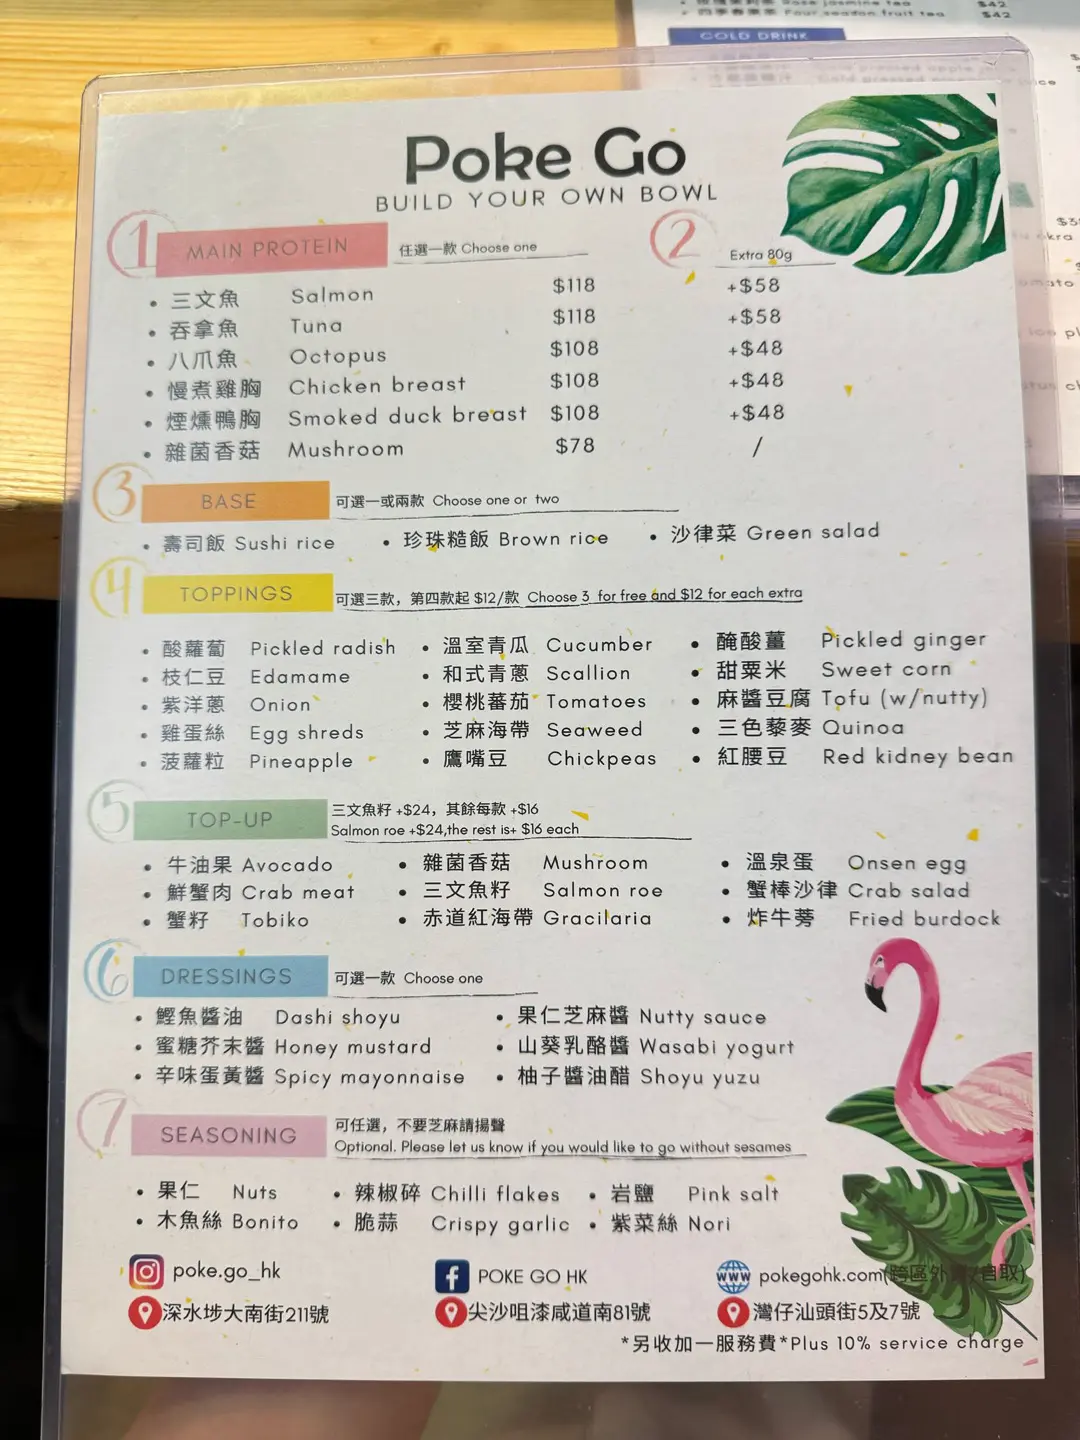 Rose jasmine tea $42
四季春果茶 Four season fruit tea $42
COLD DRINK
Poke Go
BUILD YOUR OWN BOWL
1 MAIN PROTEIN 任選一款 Choose one 2 Extra 80g
• 三文魚 Salmon $118 +$58
• 吞拿魚 Tuna $118 +$58
• 八爪魚 Octopus $108 +$48
• 慢煮雞胸 Chicken breast $108 +$48
• 煙燻鴨胸 Smoked duck breast $108 +$48
• 雜菌香菇 Mushroom $78 /
3 BASE 可選一或兩款 Choose one or two
• 壽司飯 Sushi rice • 珍珠糙飯 Brown rice • 沙律菜 Green salad
4 TOPPINGS 可選三款，第四款起 $12/款 Choose 3 for free and $12 for each extra
• 酸蘿蔔 Pickled radish • 溫室青瓜 Cucumber • 醃酸薑 Pickled ginger
• 枝仁豆 Edamame • 和式青蔥 Scallion • 甜粟米 Sweet corn
• 紫洋蔥 Onion • 櫻桃蕃茄 Tomatoes • 麻醬豆腐 Tofu (w/nutty)
• 雞蛋絲 Egg shreds • 芝麻海帶 Seaweed • 三色藜麥 Quinoa
• 菠蘿粒 Pineapple • 鷹嘴豆 Chickpeas • 紅腰豆 Red kidney bean
5 TOP-UP 三文魚籽 +$24，其餘每款 +$16
Salmon roe +$24,the rest is+ $16 each
• 牛油果 Avocado • 雜菌香菇 Mushroom • 溫泉蛋 Onsen egg
• 鮮蟹肉 Crab meat • 三文魚籽 Salmon roe • 蟹棒沙律 Crab salad
• 蟹籽 Tobiko • 赤道紅海帶 Gracilaria • 炸牛蒡 Fried burdock
6 DRESSINGS 可選一款 Choose one
• 鰹魚醬油 Dashi shoyu • 果仁芝麻醬 Nutty sauce
• 蜜糖芥末醬 Honey mustard • 山葵乳酪醬 Wasabi yogurt
• 辛味蛋黃醬 Spicy mayonnaise • 柚子醬油醋 Shoyu yuzu
7 SEASONING 可任選，不要芝麻請揚聲
Optional. Please let us know if you would like to go without sesames
• 果仁 Nuts • 辣椒碎 Chilli flakes • 岩鹽 Pink salt
• 木魚絲 Bonito • 脆蒜 Crispy garlic • 紫菜絲 Nori
poke.go_hk POKE GO HK www pokegohk.com(跨區外賣/自取)
深水埗大南街211號 尖沙咀漆咸道南81號 灣仔汕頭街5及7號
*另收加一服務費*Plus 10% service charge